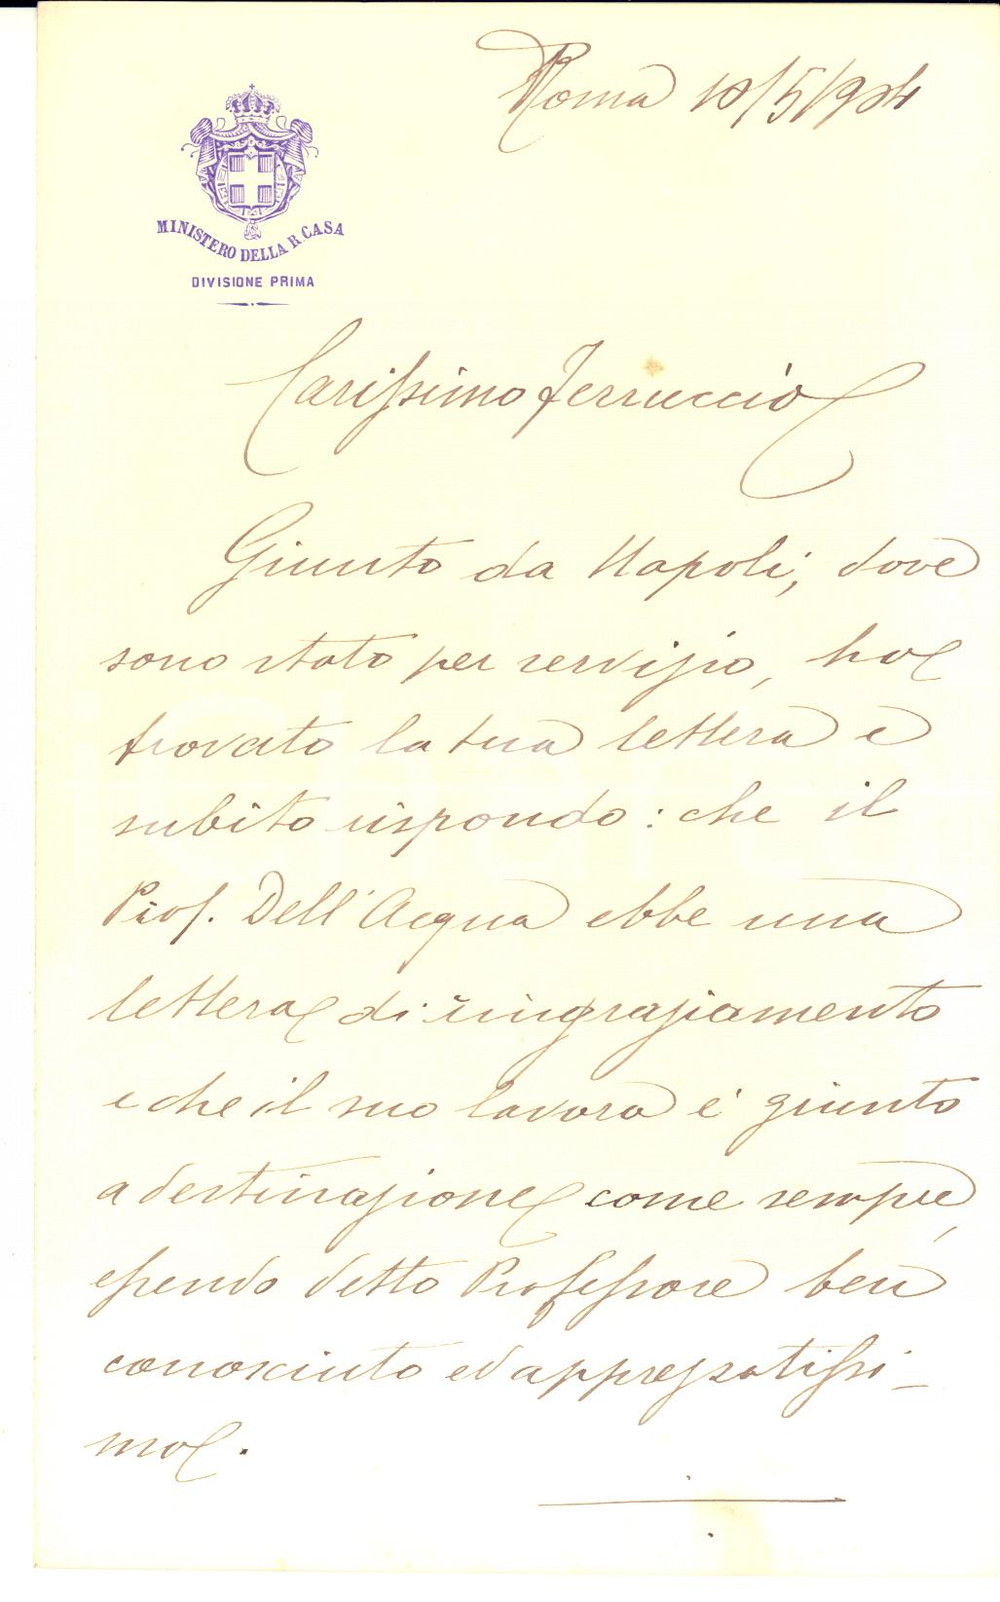 Roma 10/5/904
MINISTERO DELLA R. CASA
DIVISIONE PRIMA
Carissimo Ferruccio
Giunto da Napoli, dove
sono stato per servizio, ho
trovato la tua lettera e
subito rispondo: che il
Prof. Dell'Acqua ebbe una
lettera di ringraziamento
e che il suo lavoro è giunto
a destinazione come sempre,
essendo detto Professore ben
conosciuto ed apprezzatissi_
mo.